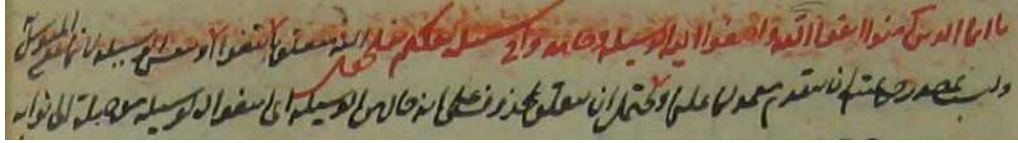 يا ايها الذين آمنوا اتقوا الله وابتغوا اليه الوسيله وجاهدوا في سبيله لعلكم تفلحون اليه متعلق بابتغوا او بنفس الوسيله لانها بمعنى المتوسل
وليست بمصدر حتى يمتنع ان يتقدم معمولها عليها ويحتمل ان يتعلق بمحذوف على انه حال من الوسيله اى ابتغوا الوسيله موصلة الى ثوابه